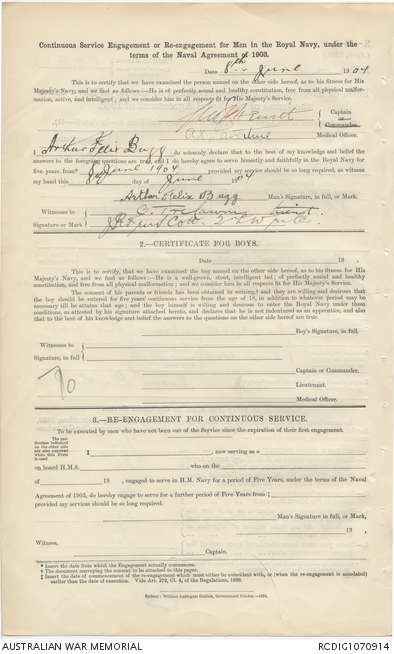 Continuous Service Engagement or Re-engagement for Men in the Royal Navy, under the
terms of the Naval Agreement of 1903.
Date 8th June 1904
This is to certify that we have examined the person named on the other side hereof, as to his fitness for His
Majesty's Navy, and we find as follows:—He is of perfectly sound and healthy constitution, free from all physical mal-
formation, active, and intelligent; and we consider him in all respects fit for His Majesty's Service.
Captain
or
Commander.
Medical Officer.
I Arthur Felix Bugg do solemnly declare that to the best of my knowledge and belief the
answers to the foregoing questions are true, and I do hereby agree to serve honestly and faithfully in the Royal Navy for
five years from* 8 June 1904 provided my service should be so long required, as witness
my hand this 8th day of June 1904
Arthur Felix Bugg Man's Signature, in full, or Mark.
Witnesses to
Signature or Mark
2.—CERTIFICATE FOR BOYS.
Date 19 .
This is to certify, that we have examined the boy named on the other side hereof, as to his fitness for His
Majesty's Navy, and we find as follows:—He is a well-grown, stout, intelligent lad; of perfectly sound and healthy
constitution, and free from all physical malformation; and we consider him in all respects fit for His Majesty's Service.
The consent of his parents or friends has been obtained in writing,† and they are willing and desirous that
the boy should be entered for five years' continuous service from the age of 18, in addition to whatever period may be
necessary till he attains that age; and the boy himself is willing and desirous to enter the Royal Navy under these
conditions, as attested by his signature attached hereto, and declares that he is not indentured as an apprentice, and also
that to the best of his knowledge and belief the answers to the questions on the other side hereof are true.
Boy's Signature, in full.
Witnesses to
Signature, in full
Captain or Commander.
Lieutenant.
Medical Officer.
3.—RE-ENGAGEMENT FOR CONTINUOUS SERVICE.
To be executed by men who have not been out of the Service since the expiration of their first engagement.
I , now serving as a
on board H.M.S. who on the
of 19 , engaged to serve in H.M. Navy for a period of Five Years, under the terms of the Naval
Agreement of 1903, do hereby engage to serve for a further period of Five Years from‡
provided my services should be so long required.
Man's Signature in full, or Mark,
19 ,
Witness,
Captain.
* Insert the date from which the Engagement actually commences.
† The document conveying the consent to be attached to this paper.
‡ Insert the date of commencement of the re-engagement which must either be coincident with, or (when the re-engagement is antedated)
earlier than the date of execution.
AUSTRALIAN WAR MEMORIAL
RCDIG1070914